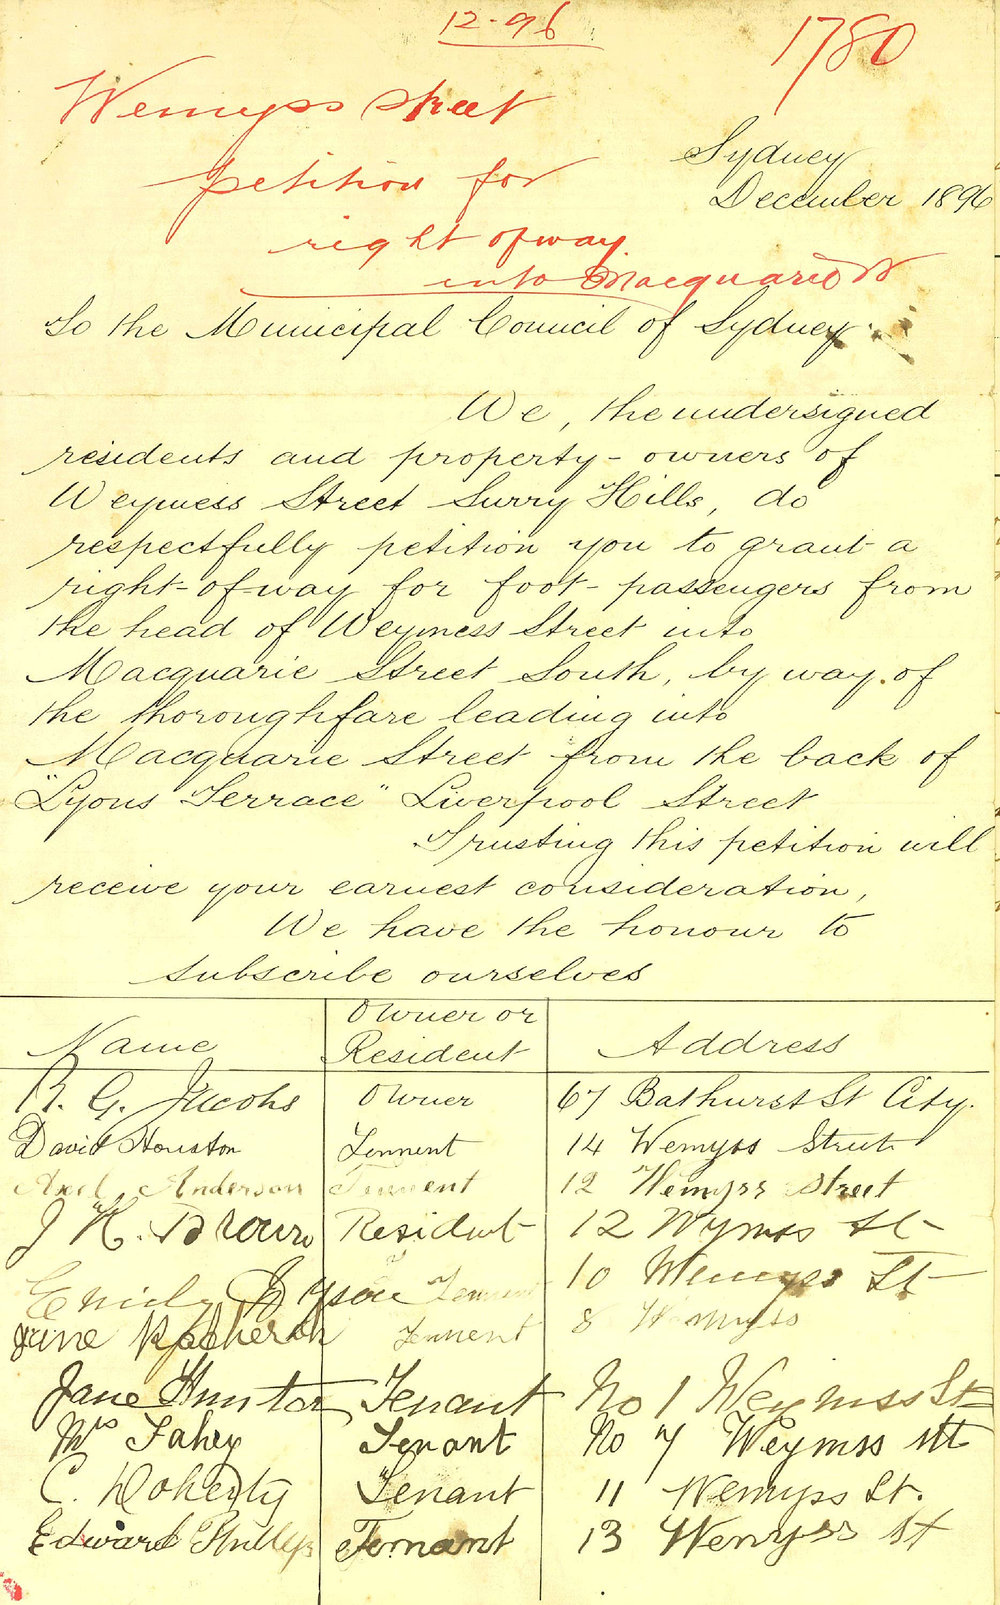 12-96
1780
Wemyss Street
petition for
right of way
into Macquarie St
Sydney
December 1896
To the Municipal Council of Sydney.
We, the undersigned
residents and property-owners of
Weymess Street Surry Hills, do
respectfully petition you to grant a
right-of-way for foot-passengers from
the head of Weymess Street into
Macquarie Street South, by way of
the thoroughfare leading into
Macquarie Street from the back of
"Lyons Terrace" Liverpool Street
Trusting this petition will
receive your earnest consideration,
We have the honour to
subscribe ourselves
Name Owner or Resident Address
R. G. Jacobs Owner 67 Bathurst St City.
David Houston Tennent 14 Wemyss Street
Axel Anderson Tennent 12 Wemyss Street
J H. Brown Resident 12 Wymss St
Emily Dyson Tennent 10 Wemyss St
Jane Tennent 8 Wemyss
Jane Hunter Tenant No 1 Weymss St
Mrs Fahey Tenant No 7 Weymss St
C. Doherty Tenant 11 Wemyss St.
Edward Phillips Tenant 13 Wemyss St